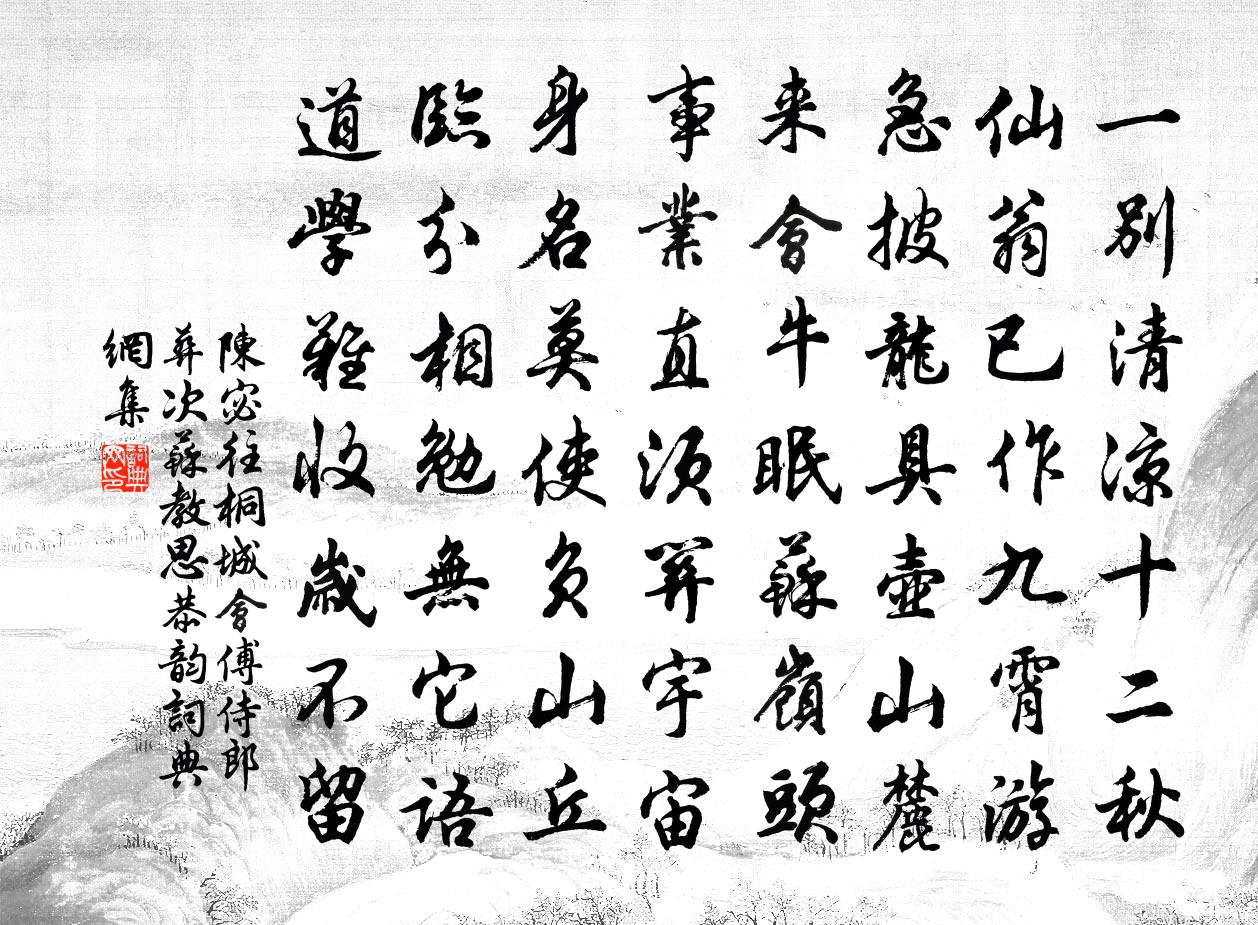 一別清涼十二秋
仙翁已作九霄游
急披龍具壺山麓
来會牛眠蘇嶺頭
事業直須関宇宙
身名莫使負山丘
臨分相勉無它語
道學難收歲不留
陳宓往桐城會傅侍郎
葬次蘇教思恭韵詞典
網集
詞典
網印